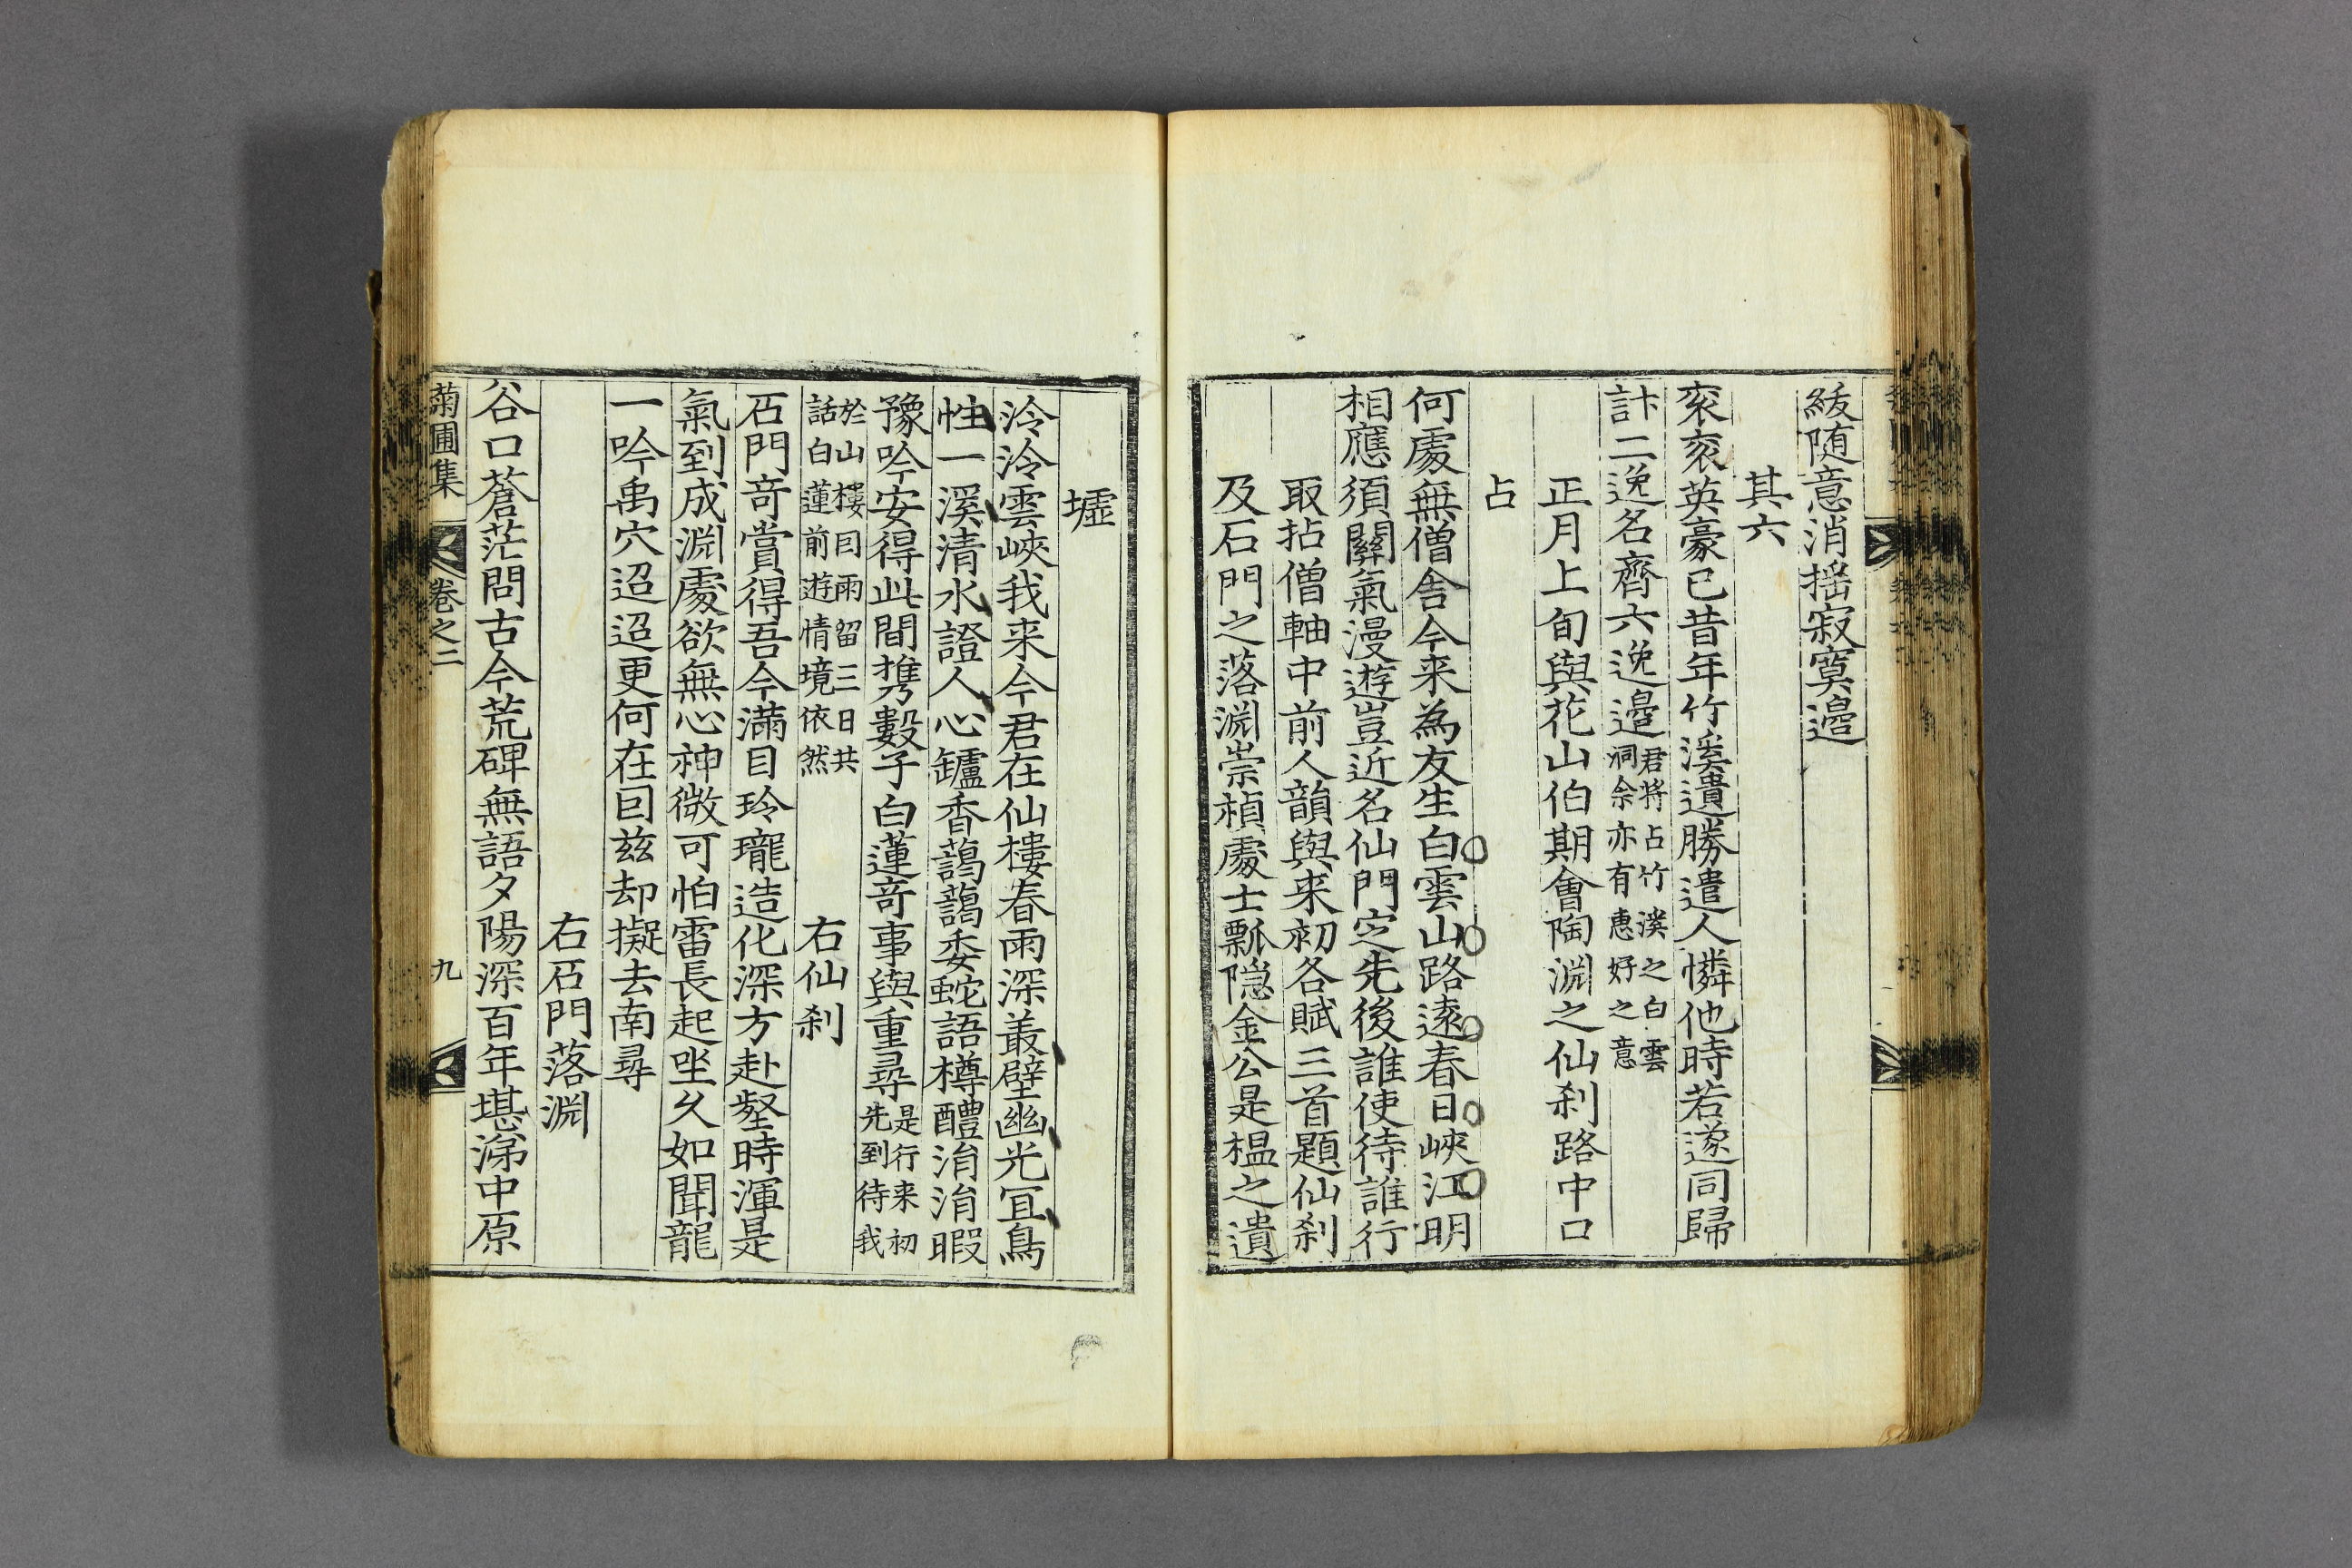 綬随意消搖寂寞邉
其六
衮衮英豪已昔年竹溪遺勝遣人憐他時若遂同歸
計二逸名齊六逸邉君将占竹溪之白雲
洞余亦有恵好之意
正月上旬與花山伯期會陶淵之仙刹路中口
占
何處無僧舍今来為友生白雲山路遠春日峽江明
相應須關氣漫遊豈近名仙門定先後誰使待誰行
取拈僧軸中前人韻與来初各賦三首題仙刹
及石門之落淵崇楨處士瓢隠金公是榲之遺
墟
泠泠雲峽我来今君在仙樓春雨深叢壁幽光冝鳥
性一溪清水證人心鑪香藹藹委蛇語樽醴湑湑暇
豫吟安得此間携數子白蓮竒事與重尋是行来初
先到待我
於山樓目雨留三日共
話白蓮前遊情境依然
右仙刹
石門竒賞得吾今滿目玲瓏造化深方赴壑時渾是
氣到成淵處欲無心神微可怕雷長起坐久如聞龍
一吟禹穴迢迢更何在囙兹却擬去南尋
右石門落淵
谷口蒼茫問古今荒碑無語夕陽深百年堪涕中原
菊圃集
卷之二
九